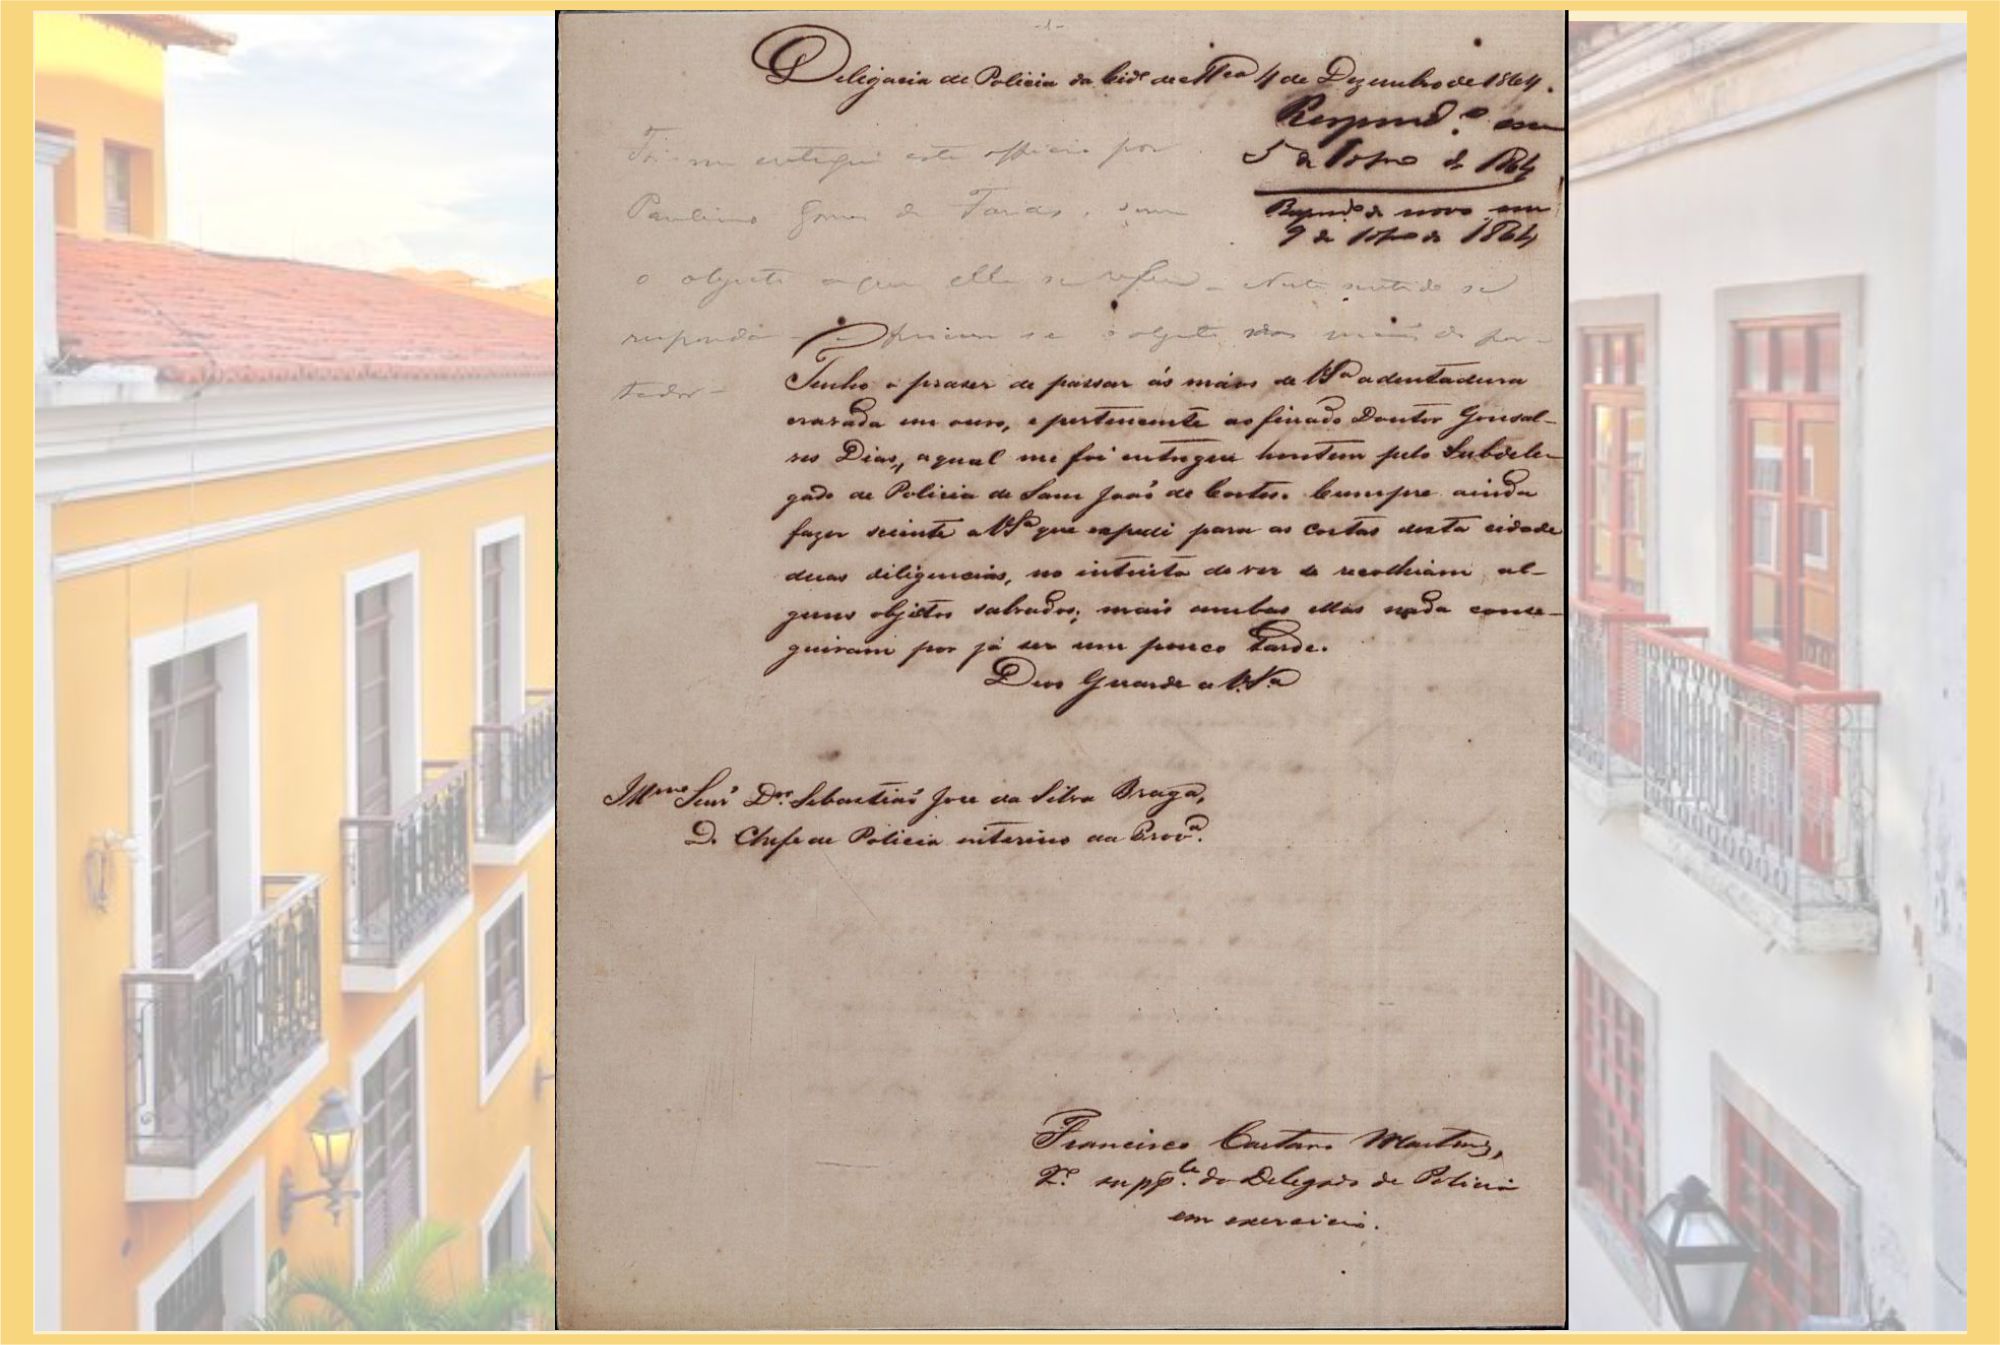 -1-
Delegacia de Policia da Cidᵉ de 4 de Dezembro de 1864.
Respondᵒ em
5 de de 1864
Respondᵒ de novo em
9 de de 1864
Foi-me entregue este officio por
Paulino Gomes de Farias, sem
o objecto aque elle se refere - Neste sentido se
responda - o objecto das mãos do por-
tador -
Tenho o praser de passar ás mãos de VSª a dentadura
cravada em ouro, e pertencente ao finado Doutor Gonsal-
ves Dias, a qual me foi entregue hontem pelo Subdele-
gado de Policia de Sam Joaõ de Cortes. Cumpre ainda
fazer sciente a VSª que expedi para as costas desta cidade
duas diligencias, no intuito de ver se recolhiam al-
guns objetos salvados; mais ambas ellas nada conse-
guiram por já ser um pouco tarde.
Deos Guarde a V.S.ª
Illᵐᵒ Senʳ Dᵒʳ Sebastiaõ Jose da Silva Braga,
D. Chefe de Policia interino da Provª.
Francisco Caetano Martins,
2º suppᵗᵉ do Delegado de Policia
em exercicio.